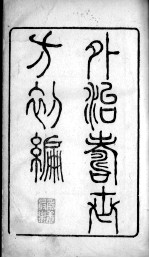 外治壽世
方初編